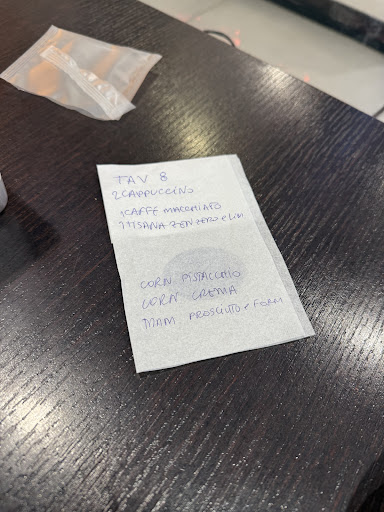 TAV 8
2 CAPPUCCINO
1 CAFFE MACCHIATO
1 TISANA ZENZERO e LIM
CORN PISTACCHIO
CORN CREMA
TRAM PROSCIUTO e FORM